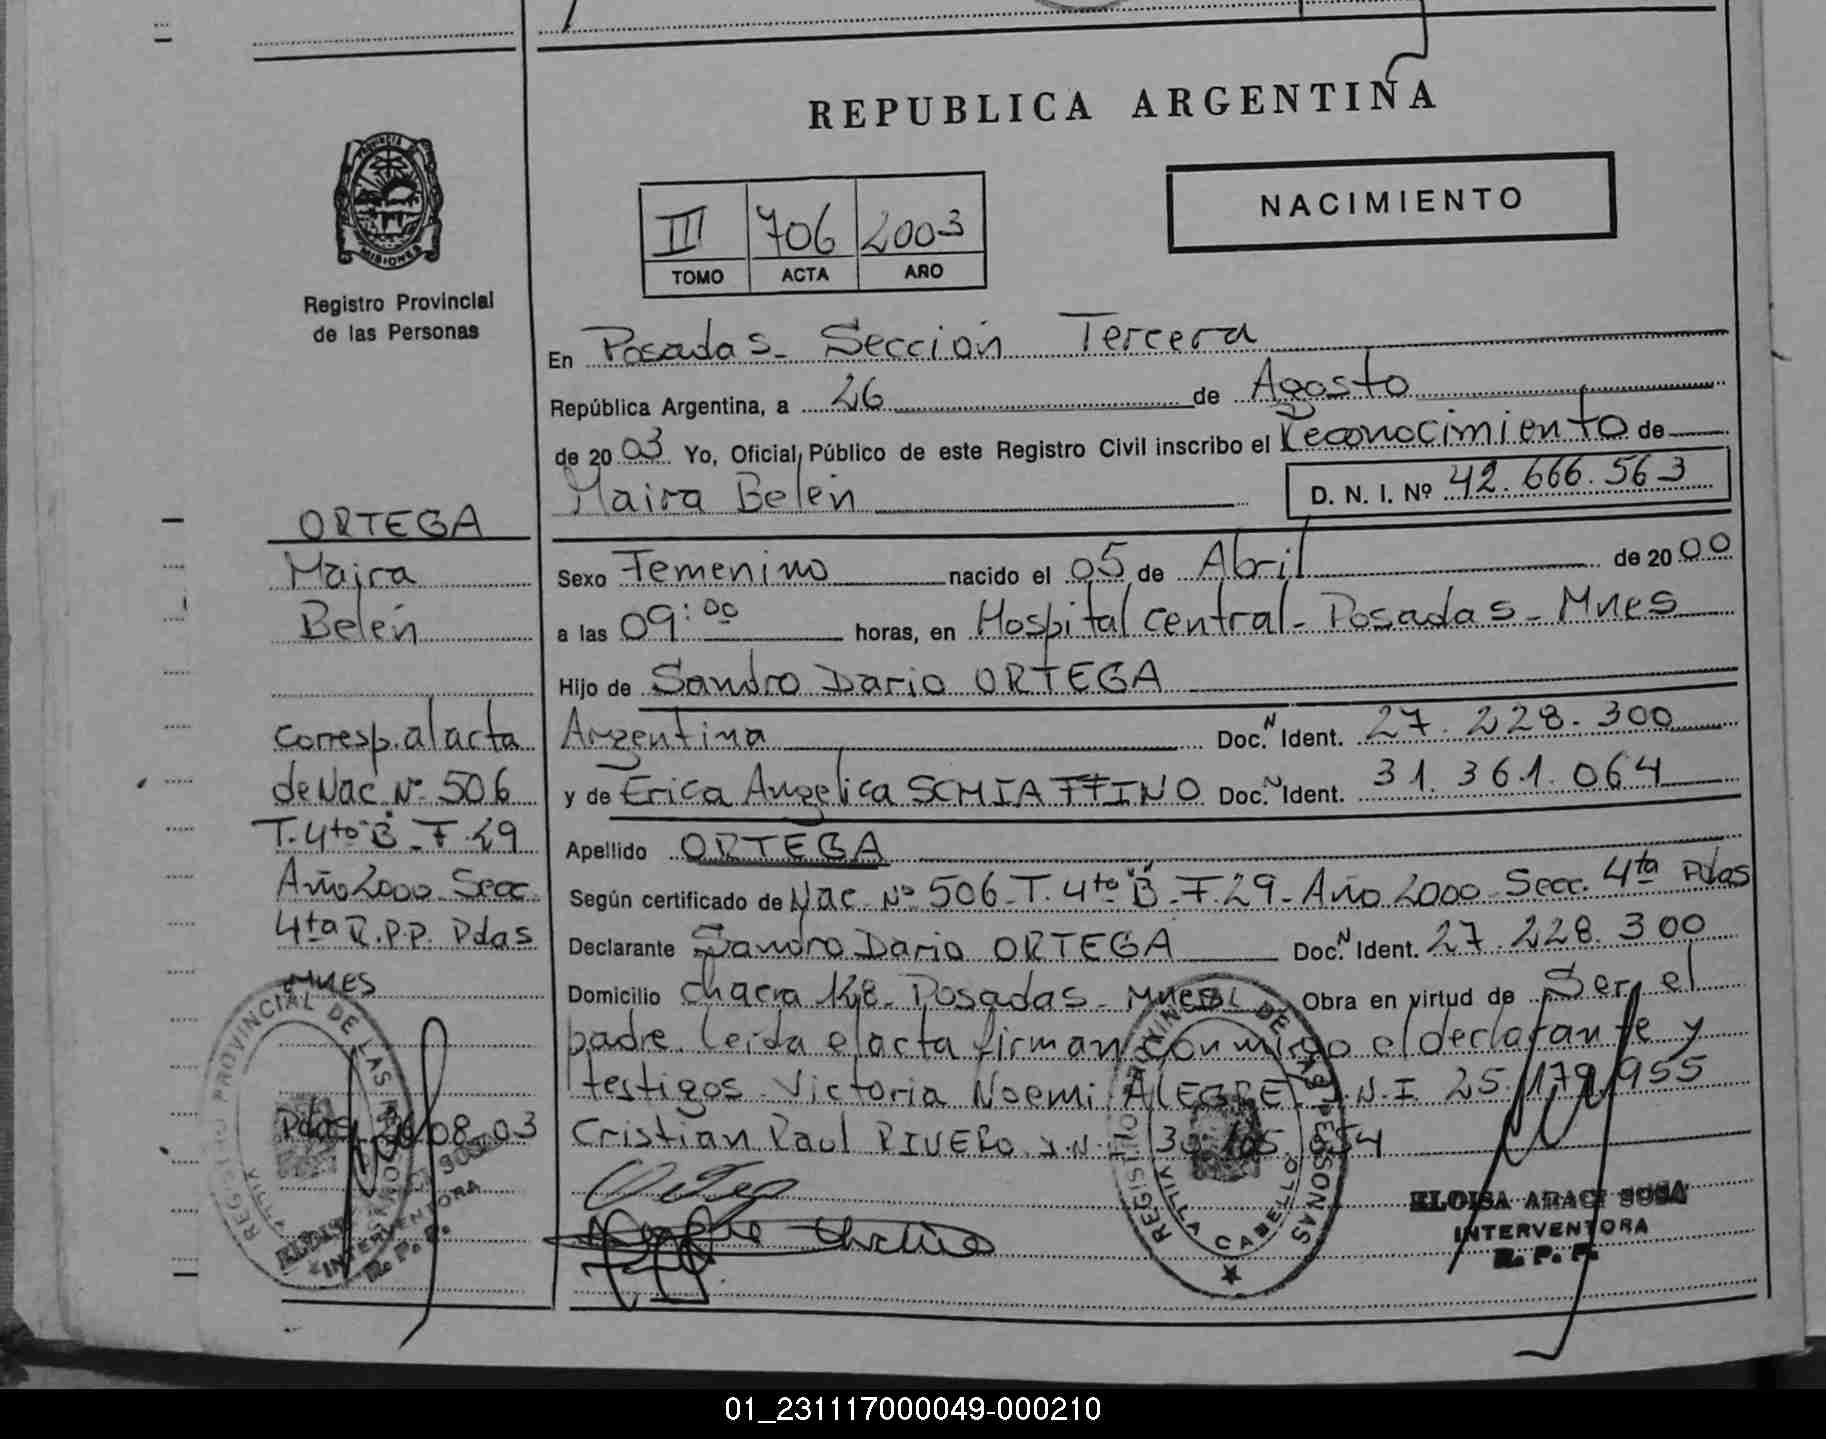 REPUBLICA ARGENTINA
NACIMIENTO
III 706 2003
TOMO ACTA AÑO
PROVINCIA DE MISIONES
Registro Provincial
de las Personas
En Posadas- Sección Tercera
República Argentina, a 26 de Agosto
de 2003 Yo, Oficial Público de este Registro Civil inscribo el Reconocimiento de
Maira Belén D. N. I. Nº 42.666.563
Sexo Femenino nacido el 05 de Abril de 2000
a las 09:00 horas, en Hospital Central- Posadas- Mnes
Hijo de Sandro Dario ORTEGA
Argentina Doc.N Ident. 27.228.300
y de Erica Angelica SCHIATTINO Doc.N Ident. 31.361.064
Apellido ORTEGA
Según certificado de Nac Nº 506-T.4to "B"-F.29-Año 2000-Secc. 4ta Pdas
Declarante Sandro Dario ORTEGA Doc.N Ident. 27.228.300
Domicilio Chacra 128- Posadas- Mnes Obra en virtud de Ser el
padre. Leida el acta firman conmigo el declarante y
testigos. Victoria Noemi ALEGRE D.N.I 25.179.955
Cristian Raul RIVERO D.N.I
ORTEGA
Maira
Belén
Corresp. al acta
de Nac Nº 506
T.4to "B"-F.29
Año 2000 Secc.
4ta R.P.P. Pdas
Mnes
Pdas, 26/08/03
REGISTRO PROVINCIAL DE LAS PERSONAS
VILLA CABELLO
ELOISA ARACI SOSA
INTERVENTORA
R. P. P.
REGISTRO PROVINCIAL DE LAS PERSONAS
INTERVENTORA
R. P. P.
01_231117000049-000210